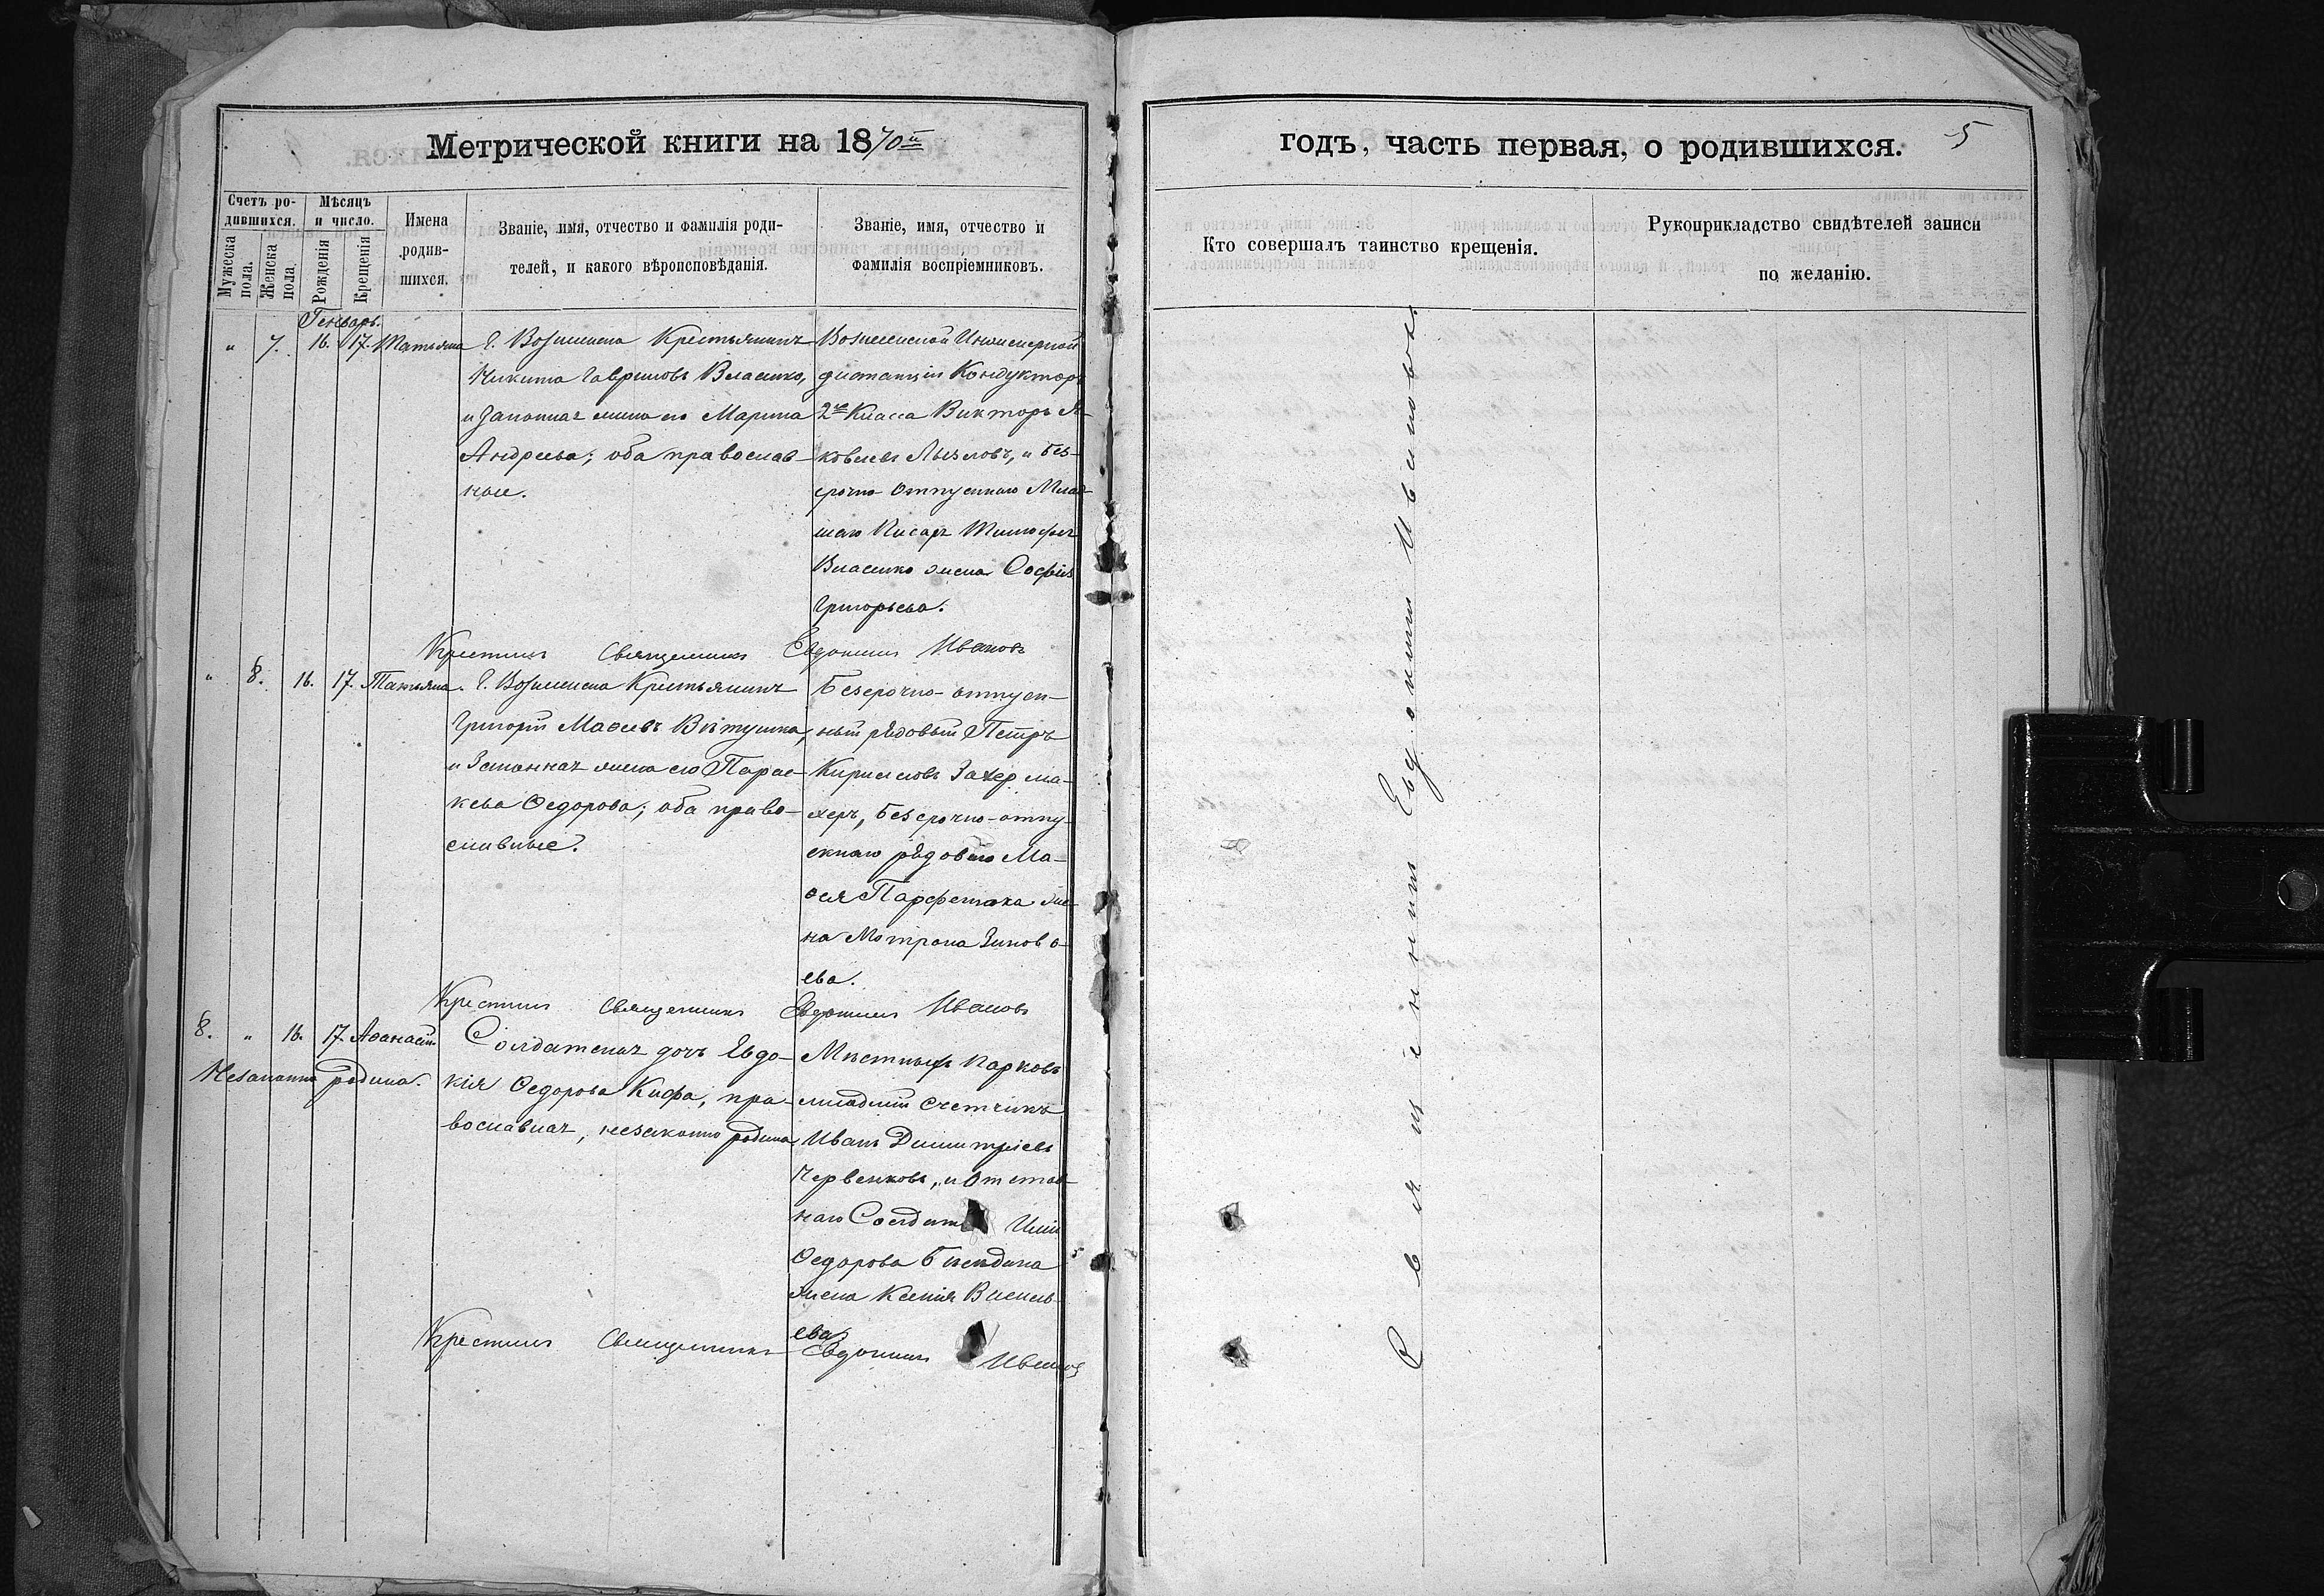 Метрической книги на 1870й
годъ, часть первая, о родившихся.
5
Счетъ родившихся.
Мужеска пола.
Женска пола.
Мѣсяцъ и число.
Рожденія
Крещенія
Имена родившихся.
Званіе, имя, отчество и фамилія родителей, и какого вѣроисповѣданія.
Званіе, имя, отчество и фамилія воспріемниковъ.
Кто совершалъ таинство крещенія.
Рукоприкладство свидѣтелей записи по желанію.
Генварь.
" 7. 16. 17. Татьяна
Г. Вознесенска Крестьянинъ
Никита Гавриловъ Власенко,
и законная жена его Марина
Андреева; оба православ-
ные.
Вознесенской Инженерной
дистанціи Кондукторъ
2го Класса Викторъ Я-
ковлевъ, и без-
срочно-отпускнаго Млад-
шаго Писаря Тимофея
Власенко жена Софія
Григорьева.
Крестилъ Священникъ Евдокимъ Ивановъ
" 8. 16. 17. Татьяна.
Г. Вознесенска Крестьянинъ
Григорій Мовсіевъ Вѣтушка,
и Законная жена его Парас-
кева Ѳедорова; оба право-
славные.
Безсрочно-отпуск-
ный рядовый Петръ
Кирилловъ Захер ма-
херъ, безсрочно-отпу-
скнаго рядоваго Мо-
сея Парфенюка же-
на Мотрона Зинов
ева.
Крестилъ Священникъ Евдокимъ Ивановъ
8. " 16. 17. Аѳанасій
Незаконно родила.
Солдатская дочь Евдо-
кія Ѳедорова Кифа, пра-
вославная, незаконно родила.
Мѣстныхъ парковъ
младшій Счетчикъ
Иванъ Димитріевъ
Червенковъ, и отстав-
наго Солдата
Ѳедорова
жена Ксенія Василь-
ева.
Крестилъ Священникъ Евдокимъ Ивановъ
Священникъ Евдокимъ Ивановъ.